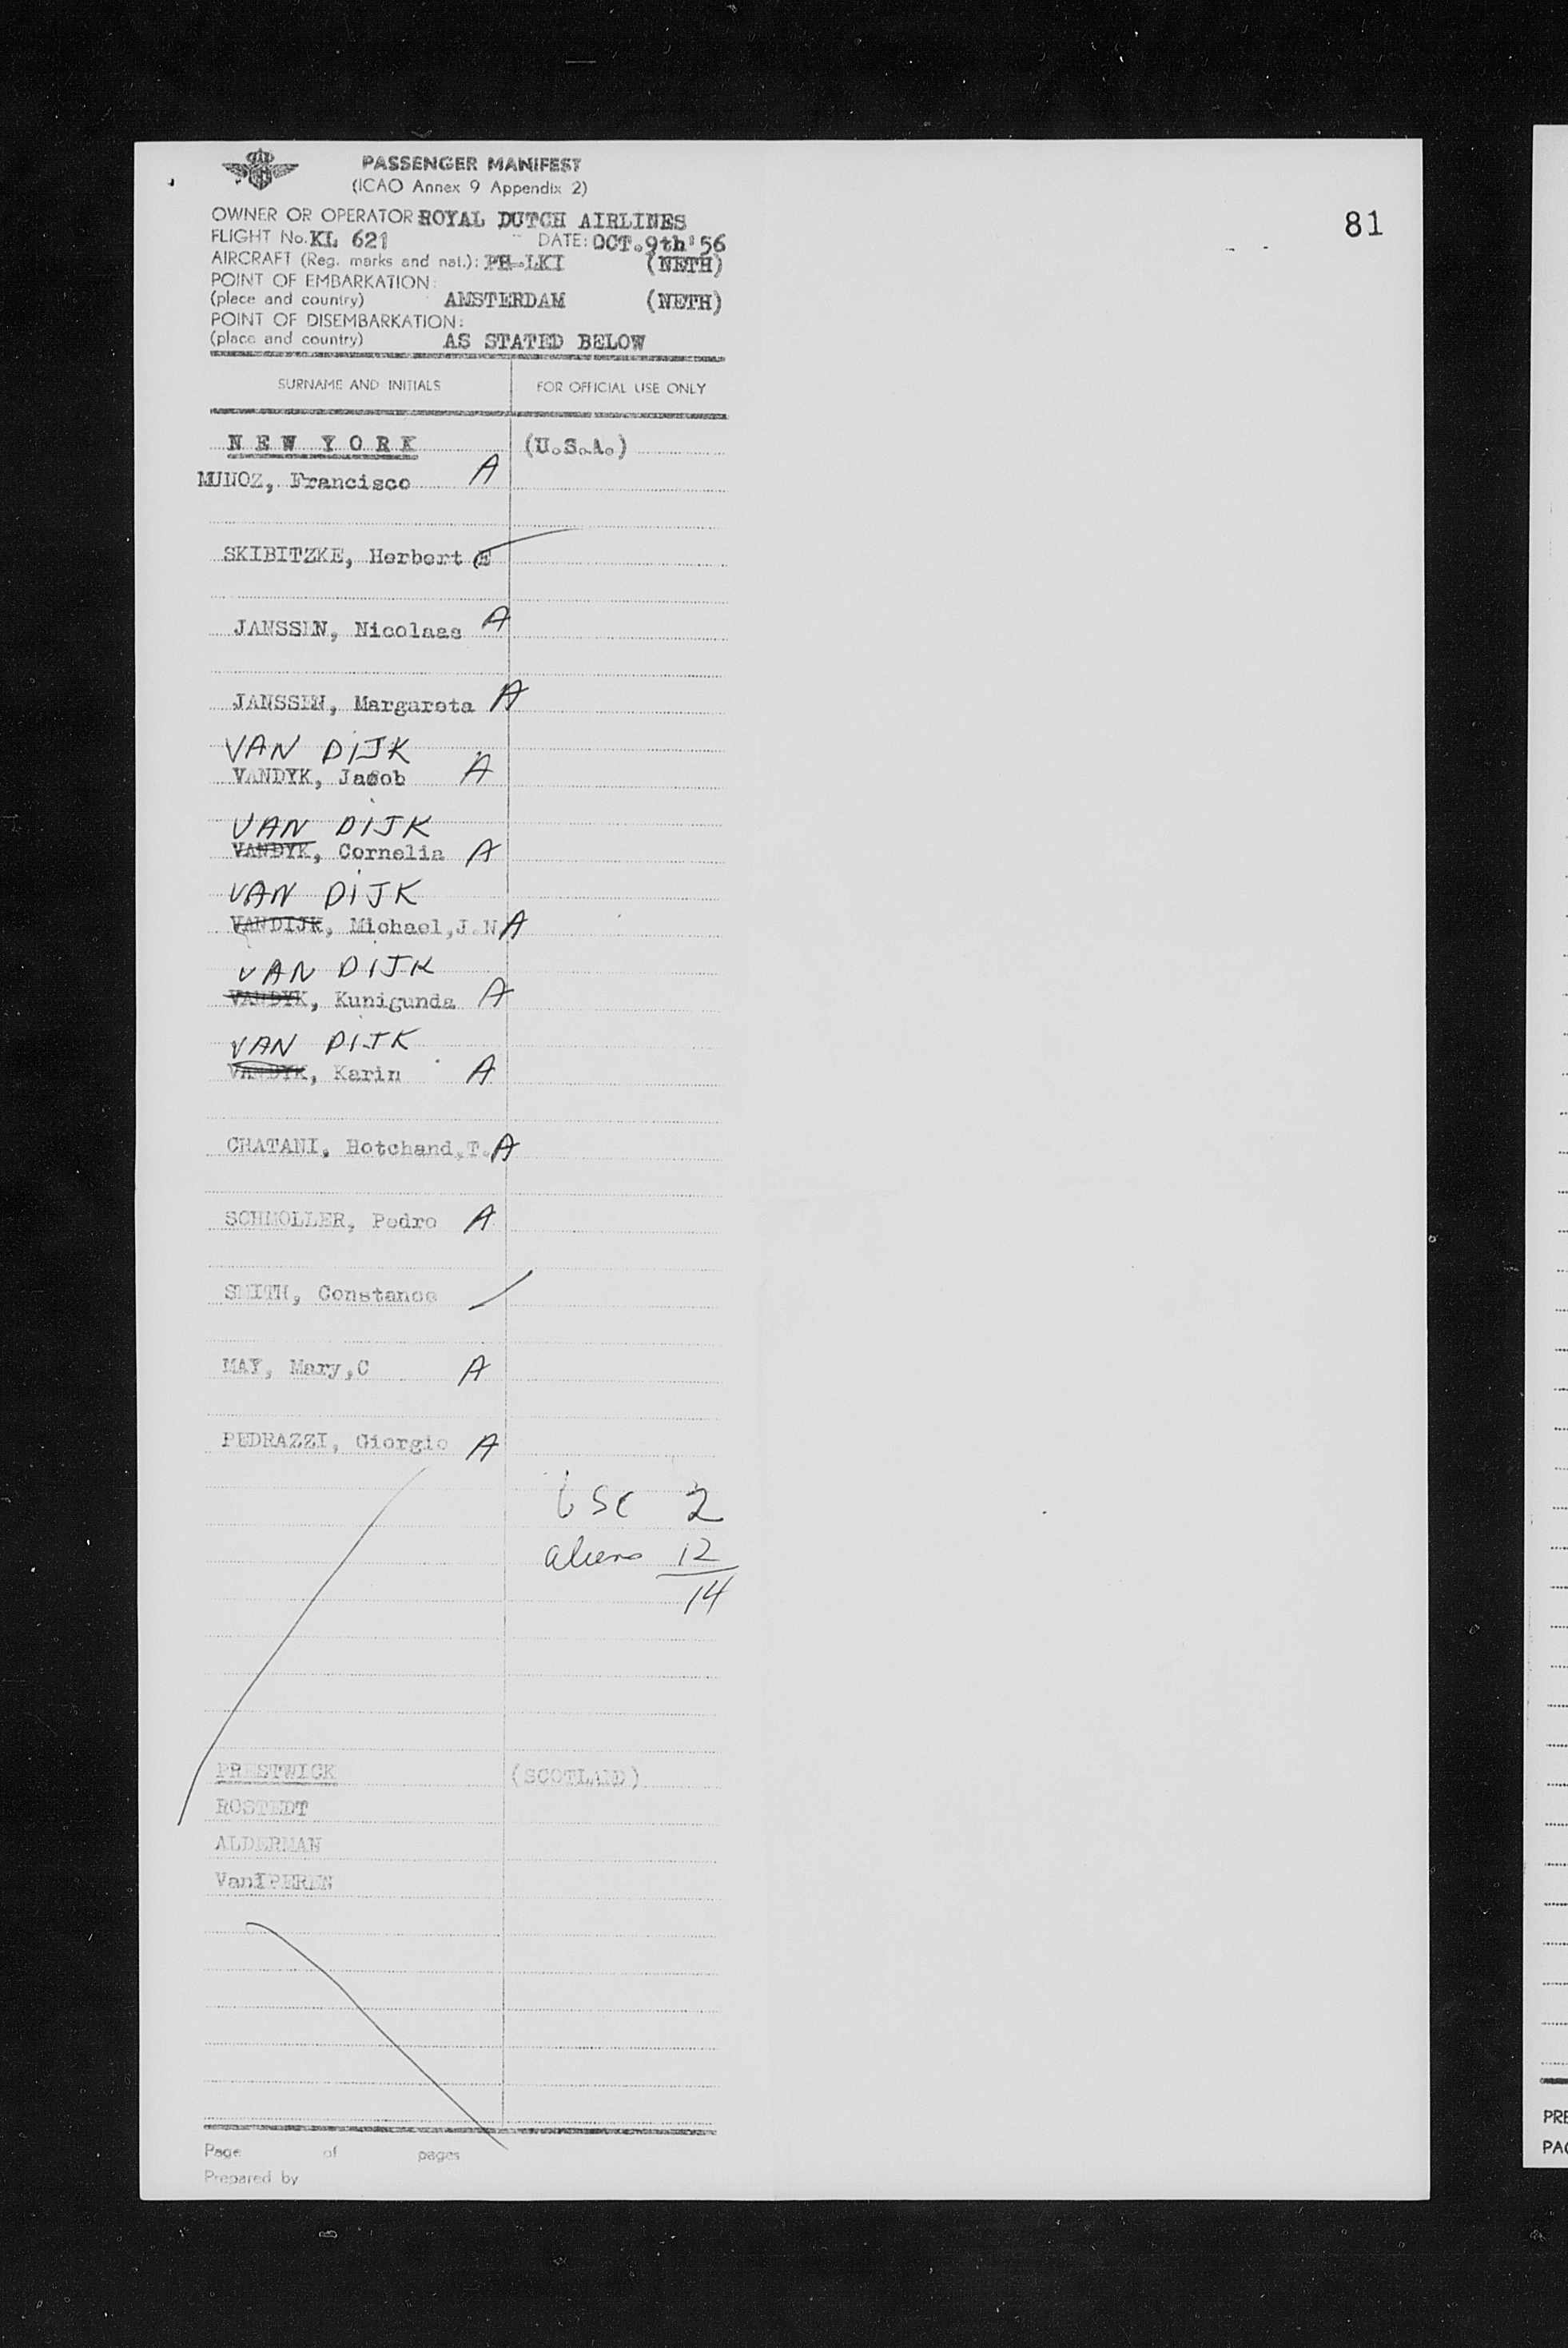 PASSENGER MANIFEST
(ICAO Annex 9 Appendix 2)
81
OWNER OR OPERATOR ROYAL DUTCH AIRLINES
FLIGHT No. KL 621 DATE: OCT. 9th'56
AIRCRAFT (Reg. marks and nat.): PH-LKI (NETH)
POINT OF EMBARKATION:
(place and country) AMSTERDAM (NETH)
POINT OF DISEMBARKATION:
(place and country) AS STATED BELOW
SURNAME AND INITIALS FOR OFFICIAL USE ONLY
NEW YORK (U.S.A.)
MUNOZ, Francisco A
SKIBITZKE, Herbert E
JANSSEN, Nicolaas A
JANSSEN, Margareta A
VAN DIJK
VANDYK, Jacob A
VAN DIJK
VANDYK, Cornelia A
VAN DIJK
VANDIJK, Michael,J.N. A
VAN DIJK
VANDYK, Kunigunda A
VAN DIJK
VANDYK, Karin A
CHATANI, Hotchand,T. A
SCHMOLLER, Pedro A
SMITH, Constance
MAY, Mary,C A
PEDRAZZI, Giorgio A
USC 2
aliens 12
14
PRESTWICK (SCOTLAND)
ROSTEDT
ALDERMAN
VanIPEREN
Page of pages
Prepared by
PRE
PAG